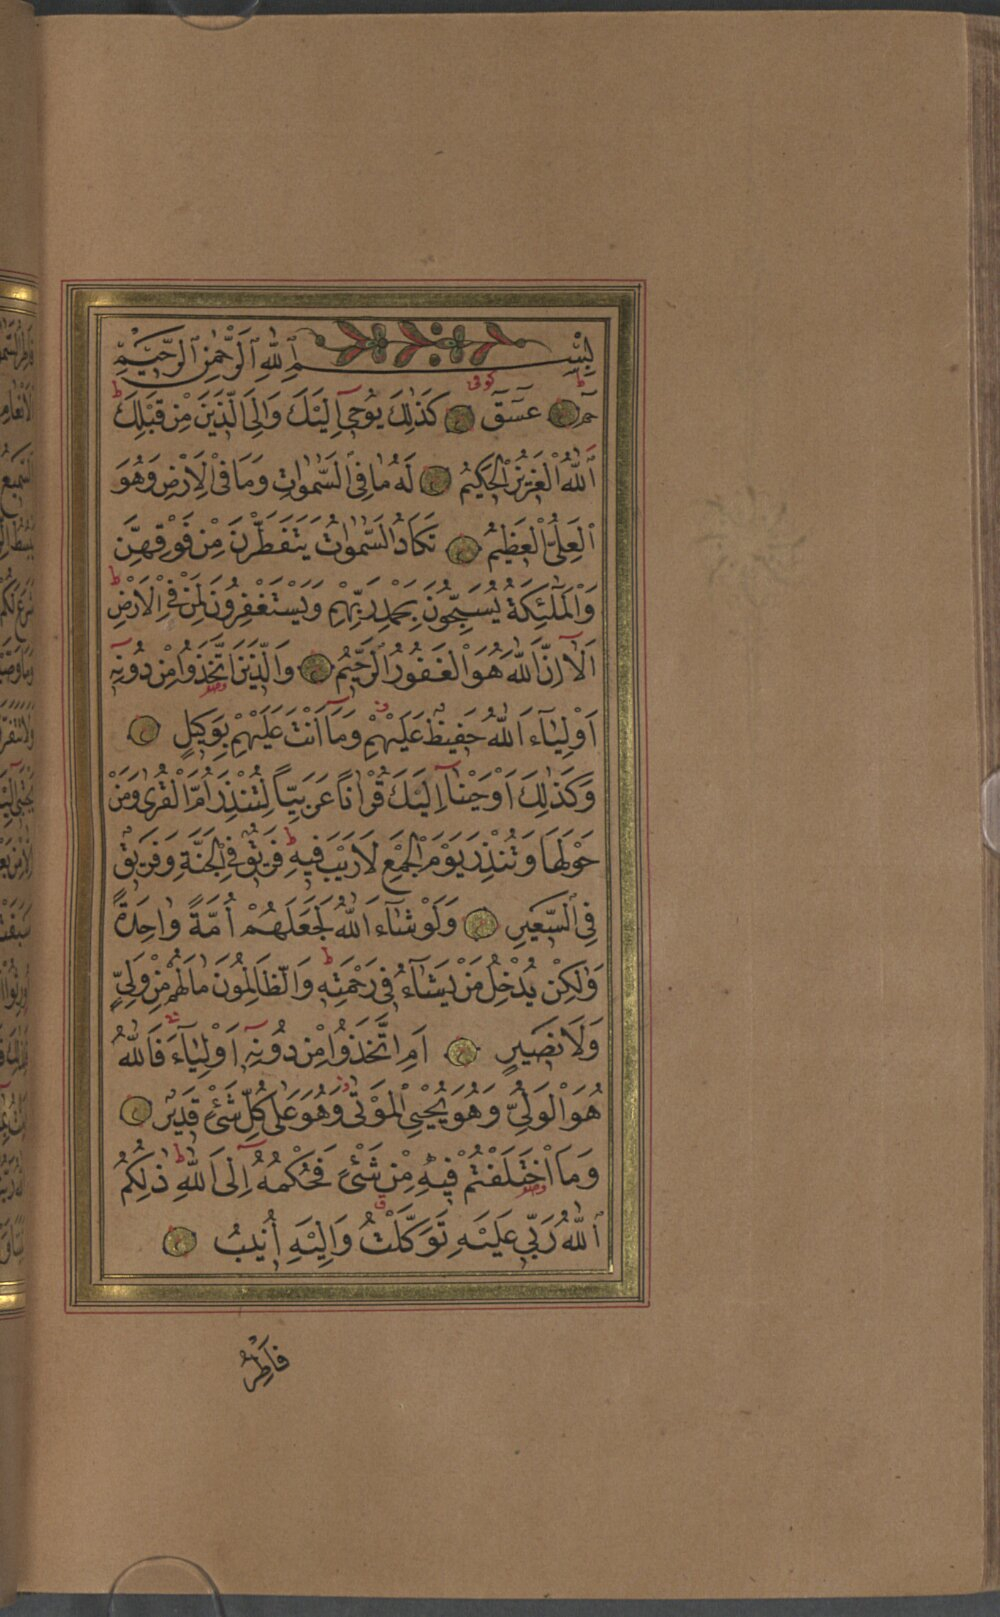 بِسْمِ ٱللّٰهِ ٱلرَّحْمٰنِ ٱلرَّحِيمِ
كوفى
حٰمٓ عٓسٓقٓ كَذٰلِكَ يُوحٖٓى اِلَيْكَ وَاِلَى الَّذٖينَ مِنْ قَبْلِكَ ط
اَللّٰهُ الْعَزٖيزُ الْحَكٖيمُ لَهُ مَا فِى السَّمٰوَاتِ وَمَا فِى الْاَرْضِ وَهُوَ
الْعَلِىُّ الْعَظٖيمُ تَكَادُ السَّمٰوَاتُ يَتَفَطَّرْنَ مِنْ فَوْقِهِنَّ
وَالْمَلٰٓئِكَةُ يُسَبِّحُونَ بِحَمْدِ رَبِّهِمْ وَيَسْتَغْفِرُونَ لِمَنْ فِى الْاَرْضِ ط
اَلَٓا اِنَّ اللّٰهَ هُوَ الْغَفُورُ الرَّحٖيمُ وَالَّذٖينَ اتَّخَذُوا مِنْ دُونِهٖٓ
اَوْلِيَٓاءَ اللّٰهُ حَفٖيظٌ عَلَيْهِمْ وَمَٓا اَنْتَ عَلَيْهِمْ بِوَكٖيلٍ
وَكَذٰلِكَ اَوْحَيْنَٓا اِلَيْكَ قُرْاٰنًا عَرَبِيًّا لِتُنْذِرَ اُمَّ الْقُرٰى وَمَنْ
حَوْلَهَا وَتُنْذِرَ يَوْمَ الْجَمْعِ لَا رَيْبَ فٖيهِ ط فَرٖيقٌ فِى الْجَنَّةِ وَفَرٖيقٌ
فِى السَّعٖيرِ وَلَوْ شَٓاءَ اللّٰهُ لَجَعَلَهُمْ اُمَّةً وَاحِدَةً
وَلٰكِنْ يُدْخِلُ مَنْ يَشَٓاءُ فٖى رَحْمَتِهٖ ط وَالظَّالِمُونَ مَا لَهُمْ مِنْ وَلِىٍّ
وَلَا نَصٖيرٍ اَمِ اتَّخَذُوا مِنْ دُونِهٖٓ اَوْلِيَٓاءَ فَاللّٰهُ
هُوَ الْوَلِىُّ وَهُوَ يُحْيِى الْمَوْتٰى وَهُوَ عَلٰى كُلِّ شَىْءٍ قَدٖيرٌ
وَمَا اخْتَلَفْتُمْ فٖيهِ مِنْ شَىْءٍ فَحُكْمُهُٓ اِلَى اللّٰهِ ط ذٰلِكُمُ
اللّٰهُ رَبّٖى عَلَيْهِ تَوَكَّلْتُ وَاِلَيْهِ اُنٖيبُ
فَاطِرُ